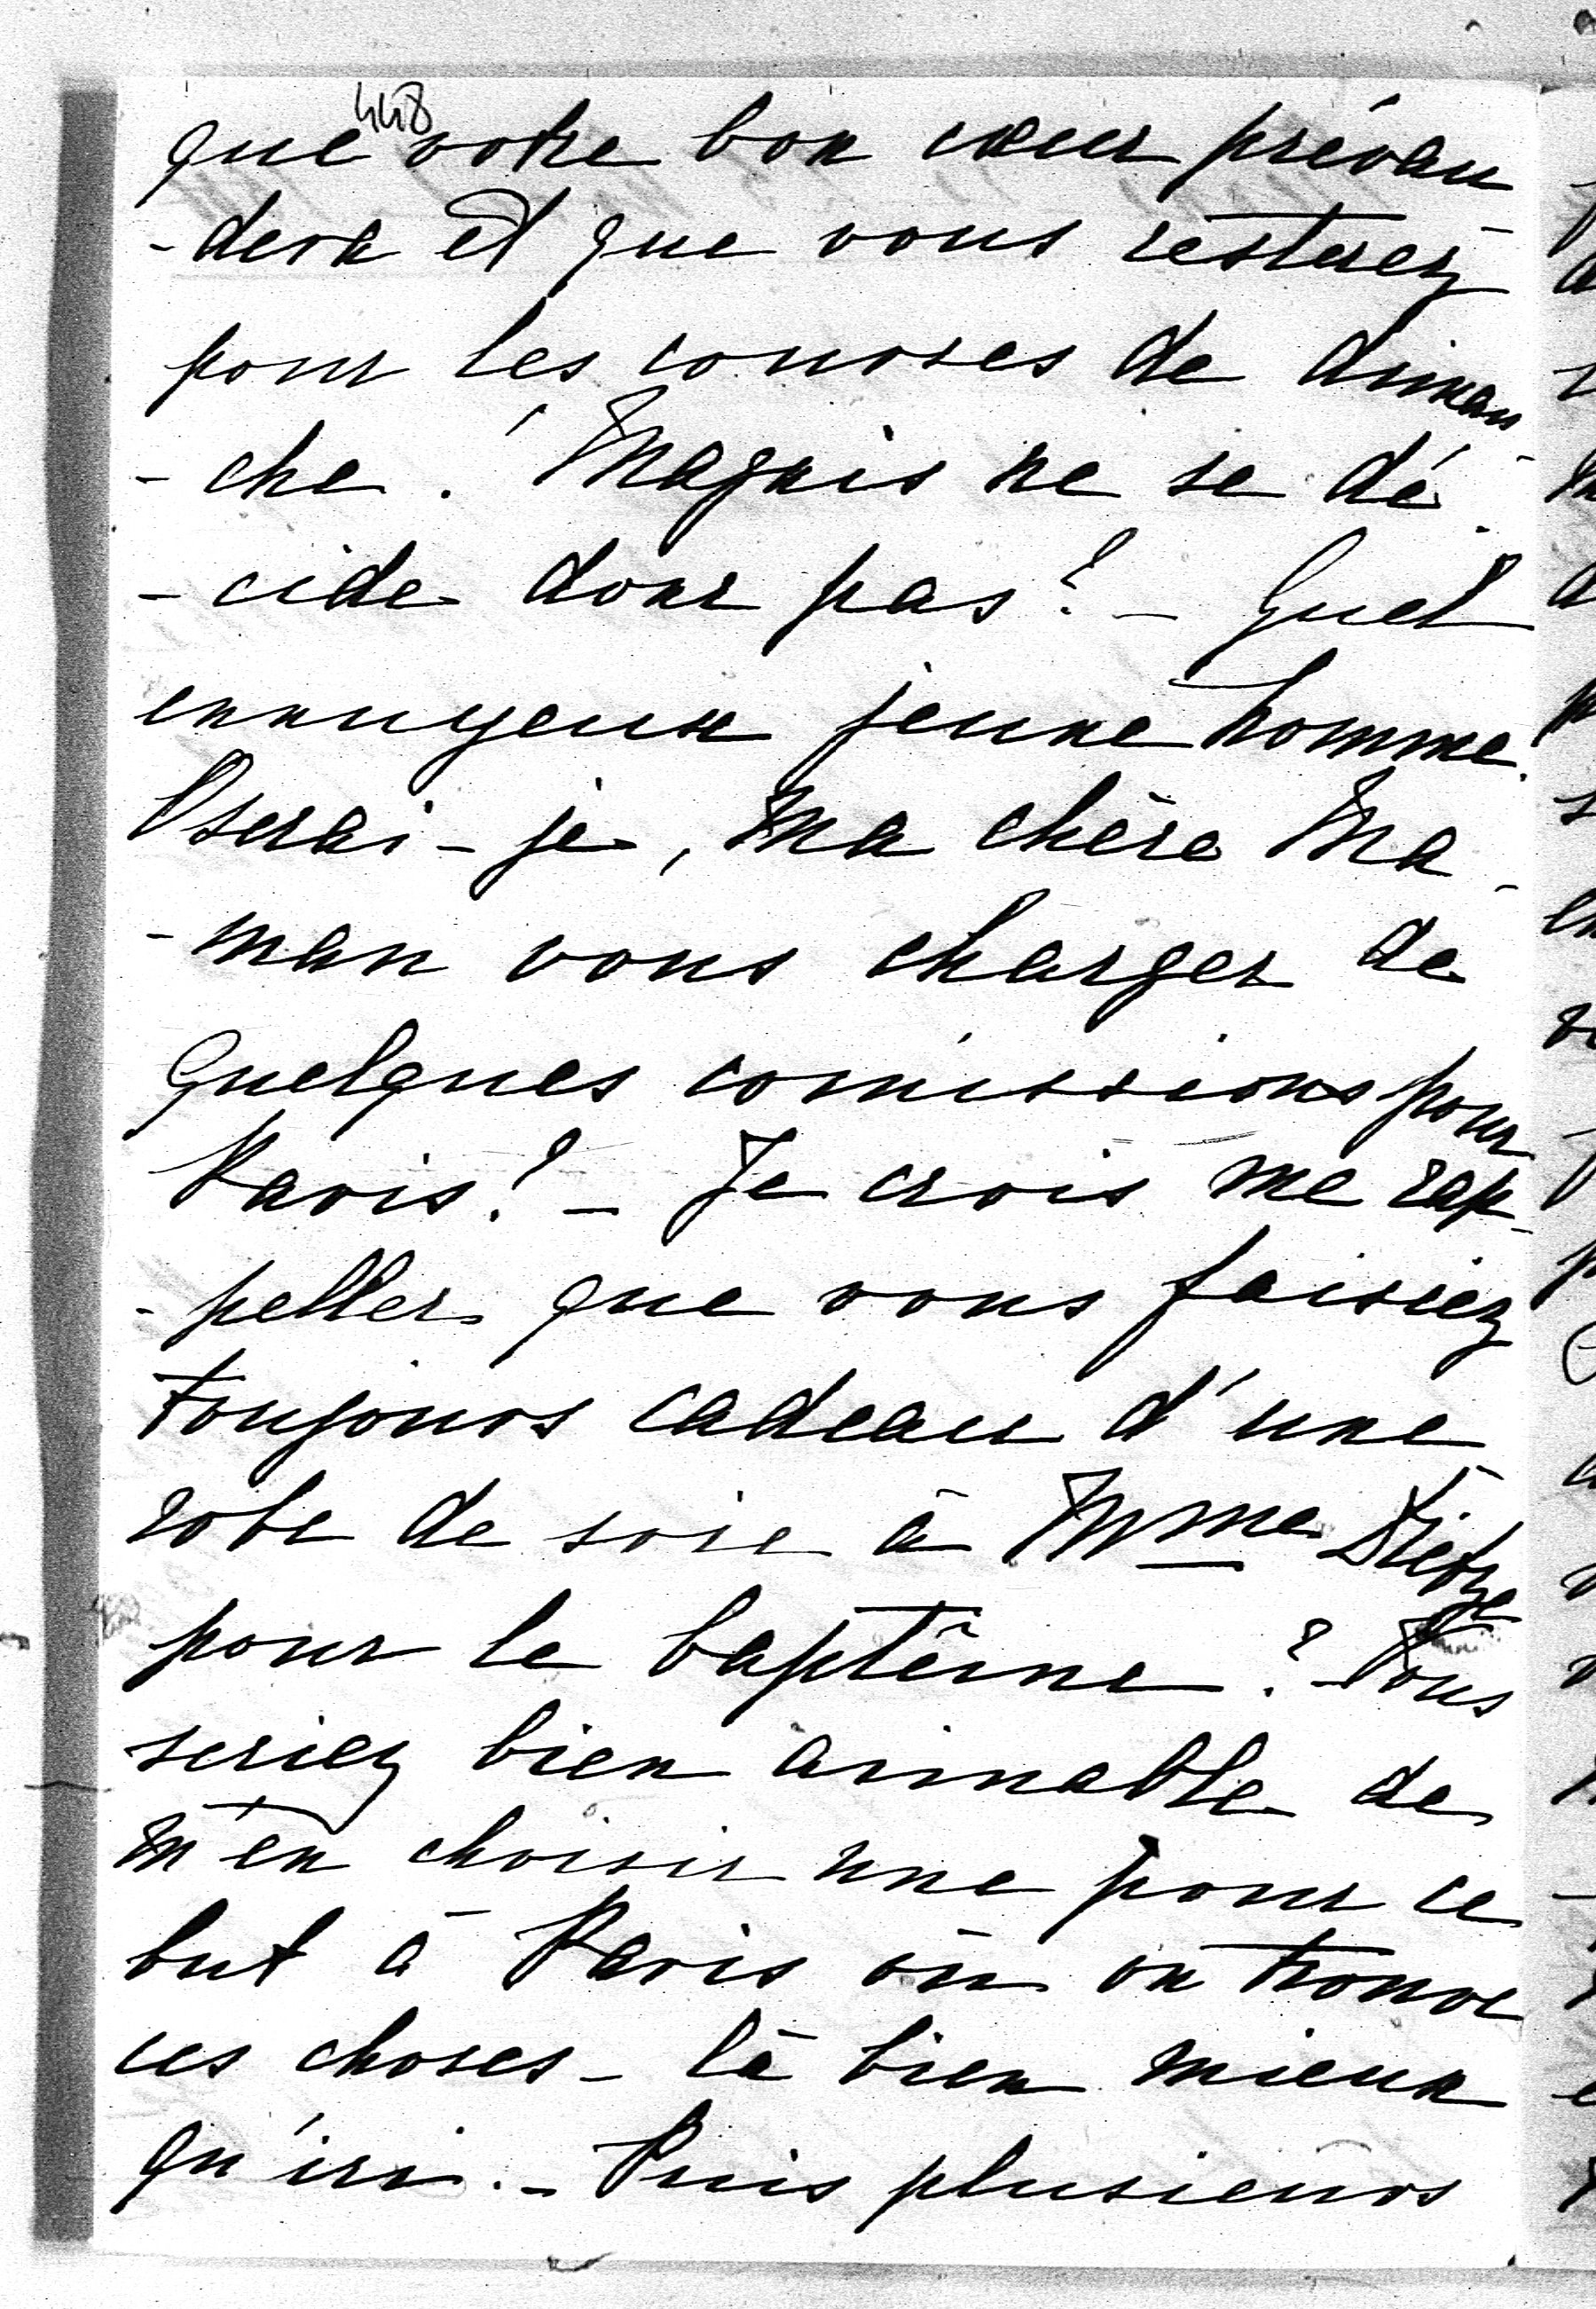 448
que votre bon cœur prévau
-dera et que vous resterez
pour les courses de diman
-che. Magnis ne se dé-
-cide donc pas? – Quel
ennuyeux jeune homme!
Oserai-je, ma chère Ma-
-man vous charger de
quelques comissions pour
Paris? – Je crois me rap-
-peller que vous faisiez
toujours cadeau d'une
robe de soie à Mme Dietze
pour le baptême? – Vous
seriez bien aimable de
m'en choisir une pour ce
but à Paris où on trouve
ces choses-là bien mieux
qu'ici. – Puis plusieurs